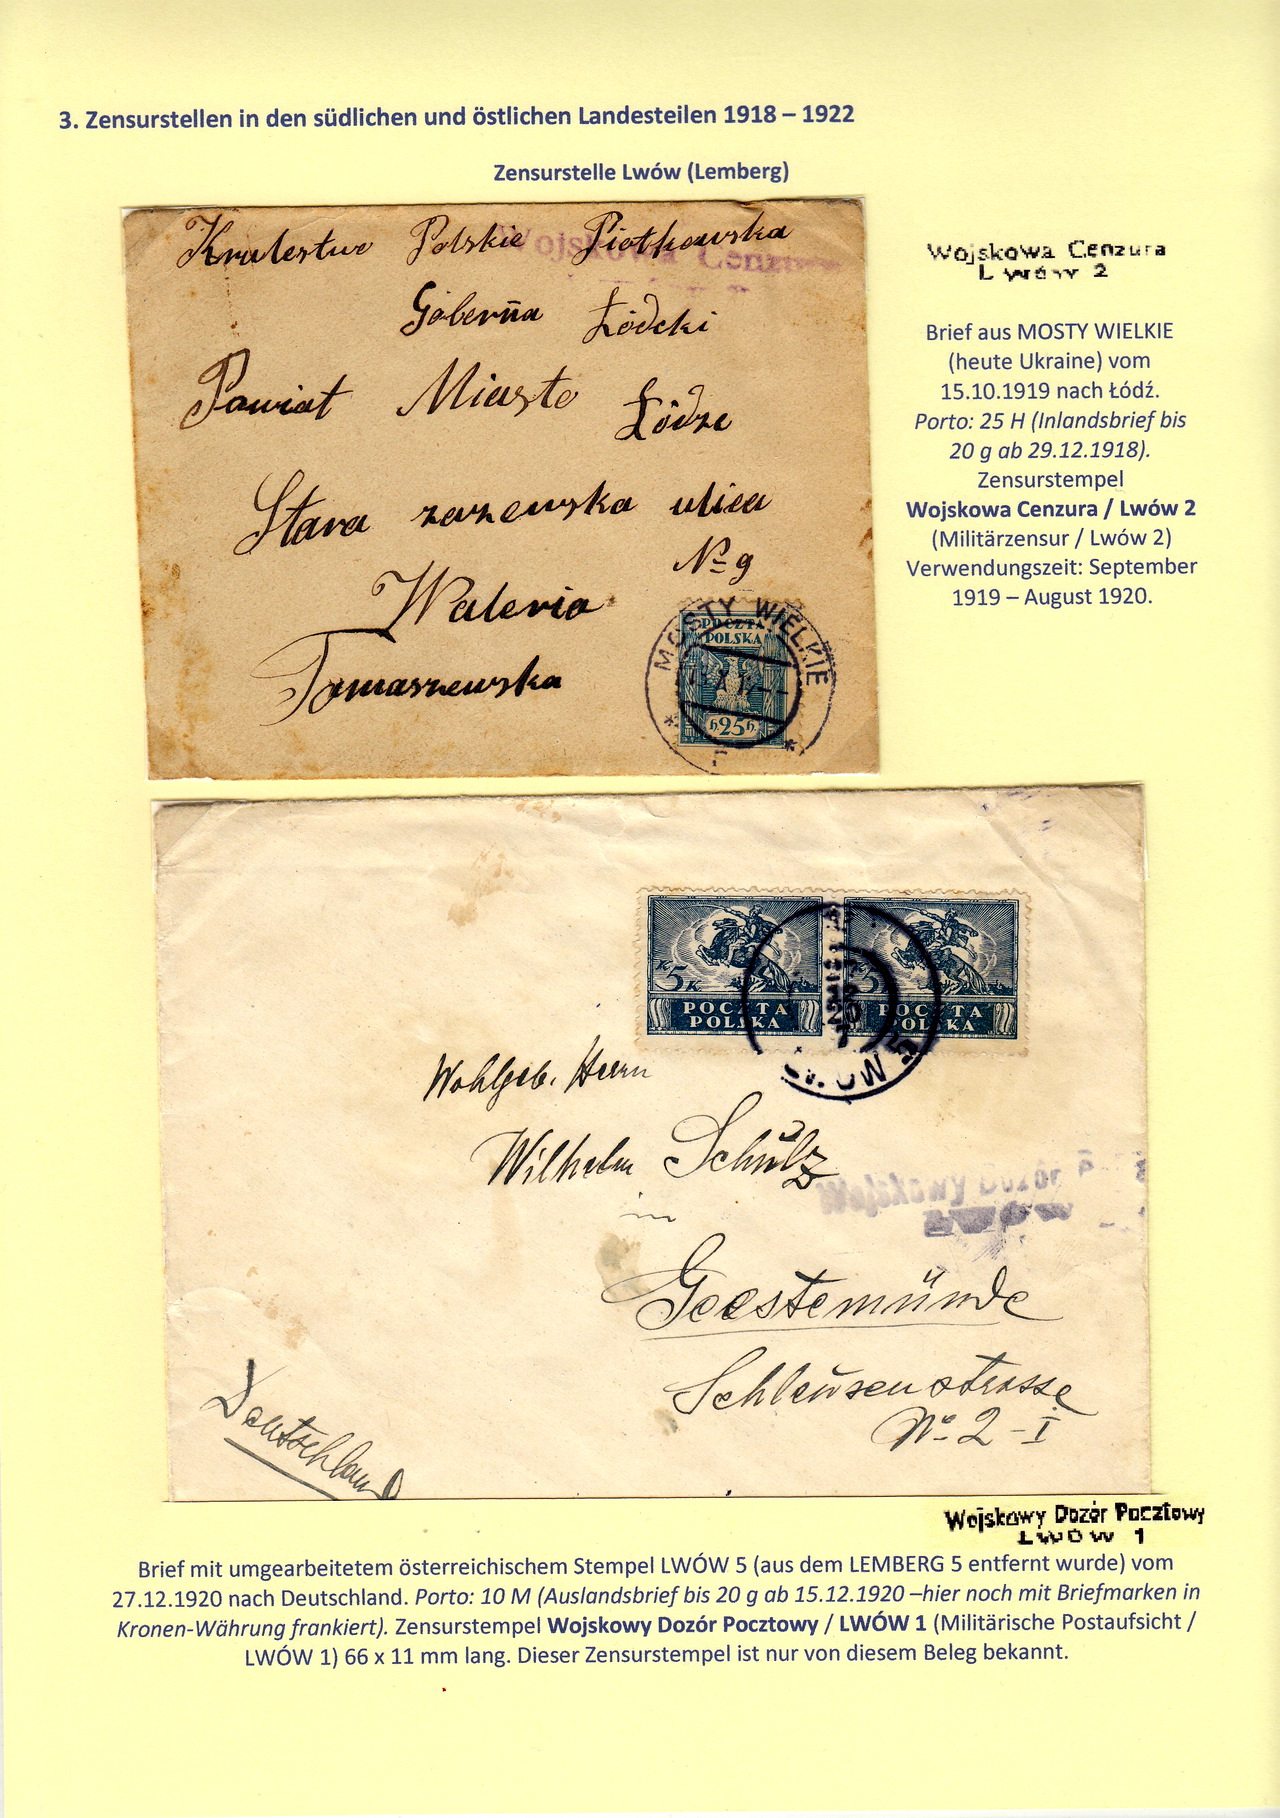 3. Zensurstellen in den südlichen und östlichen Landesteilen 1918 – 1922
Zensurstelle Lwów (Lemberg)
Krulestwo Polskie Piotkowska
Wojskowa Cenzura
Goberña Łódcki
Powiat Miasto Łódze
Stara zarzewska ulica
No 9
Waleria
Tomaszewska
MOSTY WIELKIE
POCZTA
POLSKA
h25h
Wojskowa Cenzura
Lwów 2
Brief aus MOSTY WIELKIE
(heute Ukraine) vom
15.10.1919 nach Łódź.
Porto: 25 H (Inlandsbrief bis
20 g ab 29.12.1918).
Zensurstempel
Wojskowa Cenzura / Lwów 2
(Militärzensur / Lwów 2)
Verwendungszeit: September
1919 – August 1920.
K5K
POCZTA
POLSKA
5
POCZTA
POLSKA
LWÓW 5
Wohlgeb. Herrn
Wilhelm Schulz
Wojskowy Dozór
in
Geestemünde
Schleusenstrasse
No 2 - I
Deutschland
Wojskowy Dozór Pocztowy
LWÓW 1
Brief mit umgearbeitetem österreichischem Stempel LWÓW 5 (aus dem LEMBERG 5 entfernt wurde) vom
27.12.1920 nach Deutschland. Porto: 10 M (Auslandsbrief bis 20 g ab 15.12.1920 –hier noch mit Briefmarken in
Kronen-Währung frankiert). Zensurstempel Wojskowy Dozór Pocztowy / LWÓW 1 (Militärische Postaufsicht /
LWÓW 1) 66 x 11 mm lang. Dieser Zensurstempel ist nur von diesem Beleg bekannt.